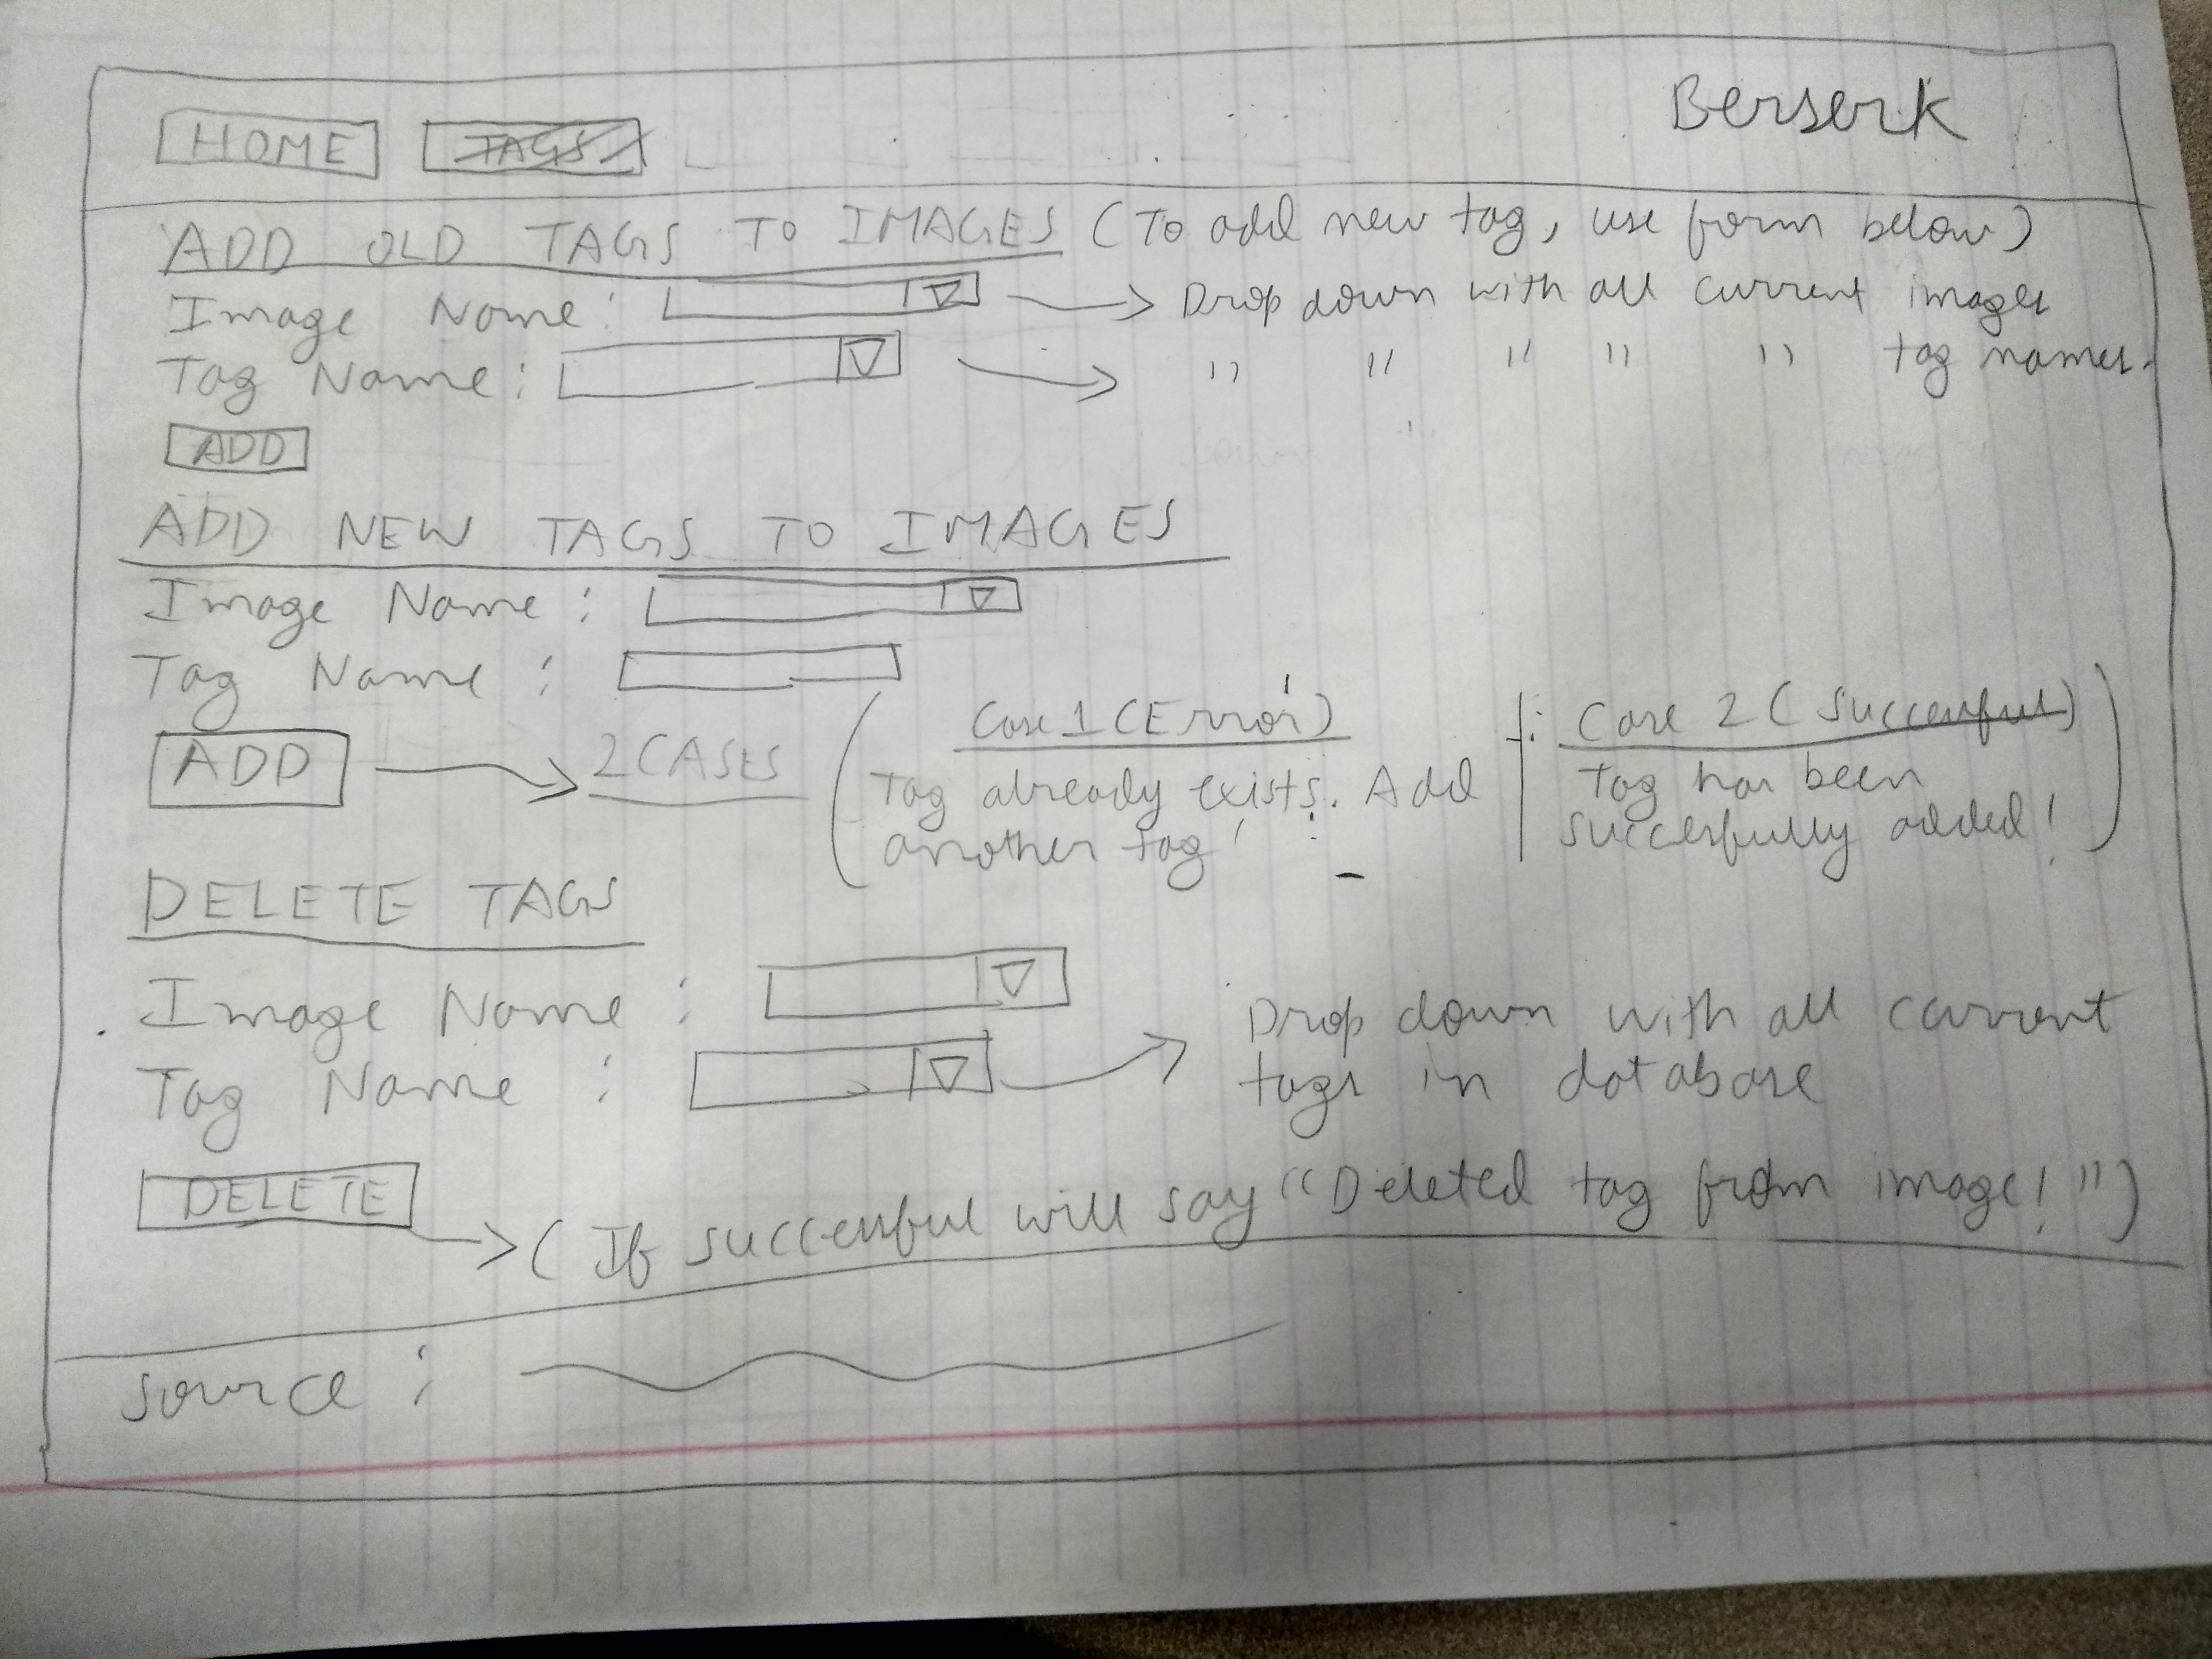 HOME TAGS Berserk
ADD OLD TAGS TO IMAGES (To add new tag, use form below)
Image Name: Drop down with all current images
Tag Name: " " " " " tag names.
ADD
ADD NEW TAGS TO IMAGES
Image Name:
Tag Name:
ADD 2 CASES
Case 1 (Error)
Tag already exists. Add
another tag!
Case 2 (Successful)
Tag has been
successfully added!
DELETE TAGS
Image Name:
Tag Name: Drop down with all current
tags in database
DELETE
(If successful will say "Deleted tag from image!")
Source: